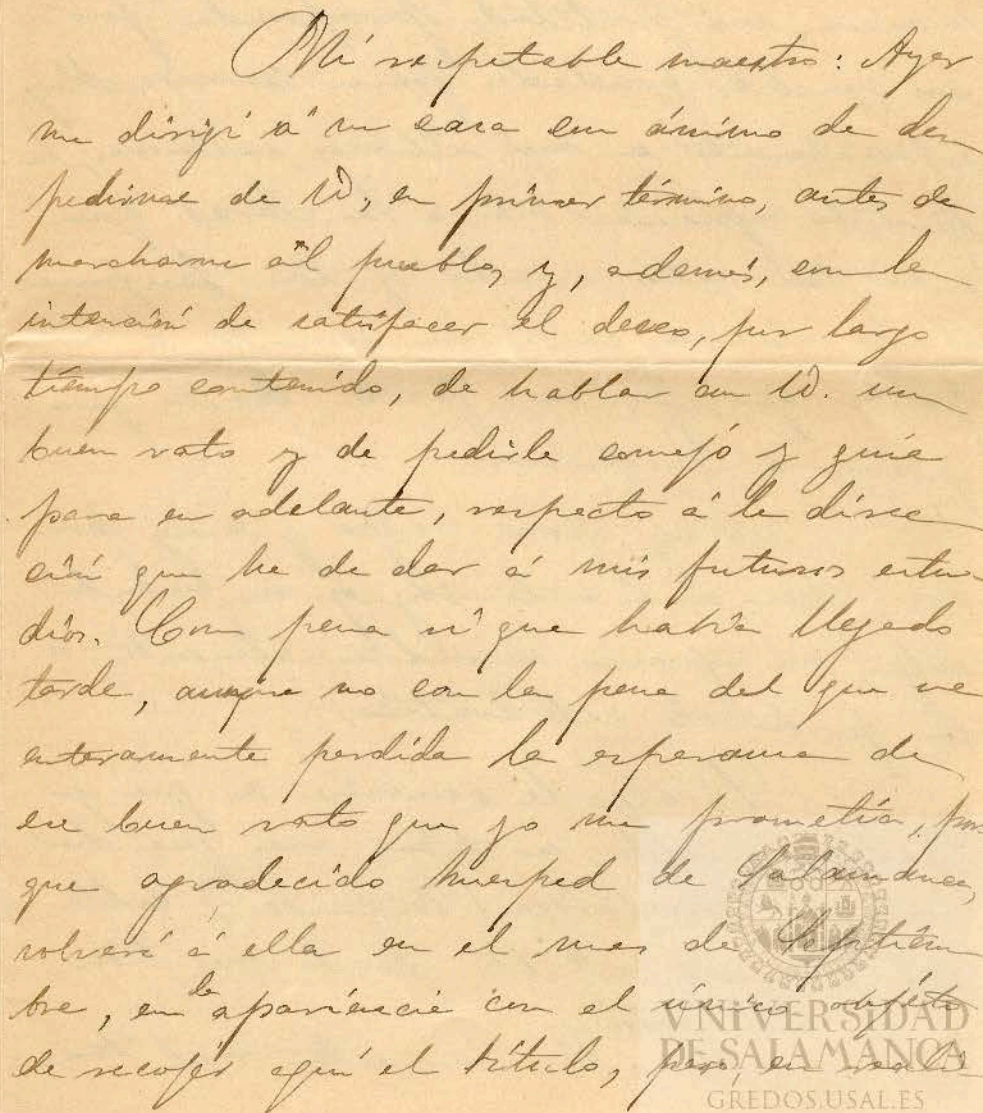 Mi respetable maestro: Ayer
me dirigí á su casa con ánimo de des
pedirme de Vd, en primer término, antes de
marcharme al pueblo, y, además, con la
intención de satisfacer el deseo, por largo
tiempo contenido, de hablar con Vd. un
buen rato y de pedirle consejo y guía
para en adelante, respecto á la direc
ción que he de dar á mis futuros estu
dios. Con pena ví que había llegado
tarde, aunque no con la pena del que ve
enteramente perdida la esperanza de
ese buen rato que yo me prometía, por
que agradecido huesped de Salamanca,
volveré á ella en el mes de Septiem
bre, en la apariencia con el único objeto
de recojer aquí el título, pero, en reali
VNIVERSIDAD
DE SALAMANCA
GREDOS.USAL.ES